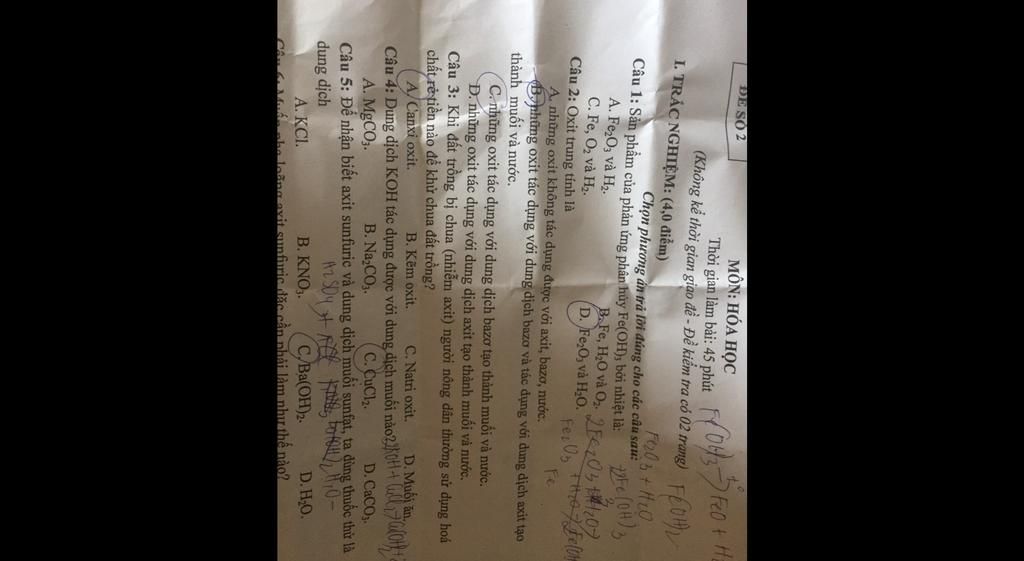 ĐỀ SỐ 2
MÔN: HÓA HỌC
Thời gian làm bài: 45 phút
(Không kể thời gian giao đề - Đề kiểm tra có 02 trang)
I. TRẮC NGHIỆM: (4,0 điểm)
Chọn phương án trả lời đúng cho các câu sau:
Câu 1: Sản phẩm của phản ứng phân hủy Fe(OH)₃ bởi nhiệt là:
A. Fe₂O₃ và H₂. B. Fe, H₂O và O₂.
C. Fe, O₂ và H₂. D. Fe₂O₃ và H₂O.
Câu 2: Oxit trung tính là
A. những oxit không tác dụng được với axit, bazơ, nước.
B. những oxit tác dụng với dung dịch bazơ và tác dụng với dung dịch axit tạo
thành muối và nước.
C. những oxit tác dụng với dung dịch bazơ tạo thành muối và nước.
D. những oxit tác dụng với dung dịch axit tạo thành muối và nước.
Câu 3: Khi đất trồng bị chua (nhiễm axit) người nông dân thường sử dụng hoá
chất rẻ tiền nào để khử chua đất trồng?
A. Canxi oxit. B. Kẽm oxit. C. Natri oxit. D. Muối ăn.
Câu 4: Dung dịch KOH tác dụng được với dung dịch muối nào?
A. MgCO₃. B. Na₂CO₃. C. CuCl₂. D. CaCO₃.
Câu 5: Để nhận biết axit sunfuric và dung dịch muối sunfat, ta dùng thuốc thử là
dung dịch
A. KCl. B. KNO₃. C. Ba(OH)₂. D. H₂O.
axit sunfuric đặc cần phải làm như thế nào?